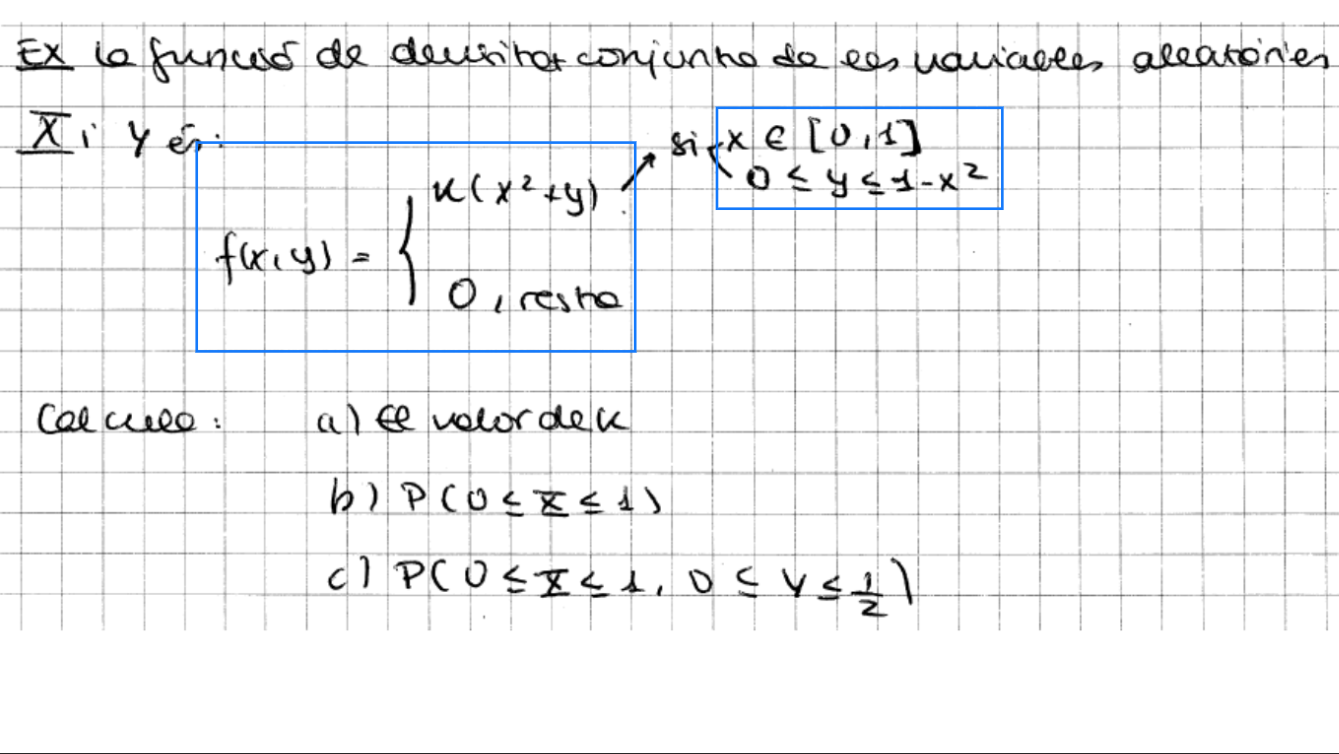 Ex la funció de densitat conjunta de les variables aleatòries
X i Y és:
si x ∈ [0,1]
0 ≤ y ≤ 1-x²
k(x²+y)
f(x,y) =
0, resta
Calcula: a) El valor de k
b) P(0 ≤ X ≤ 1)
c) P(0 ≤ X ≤ 1, 0 ≤ Y ≤ 1/2)